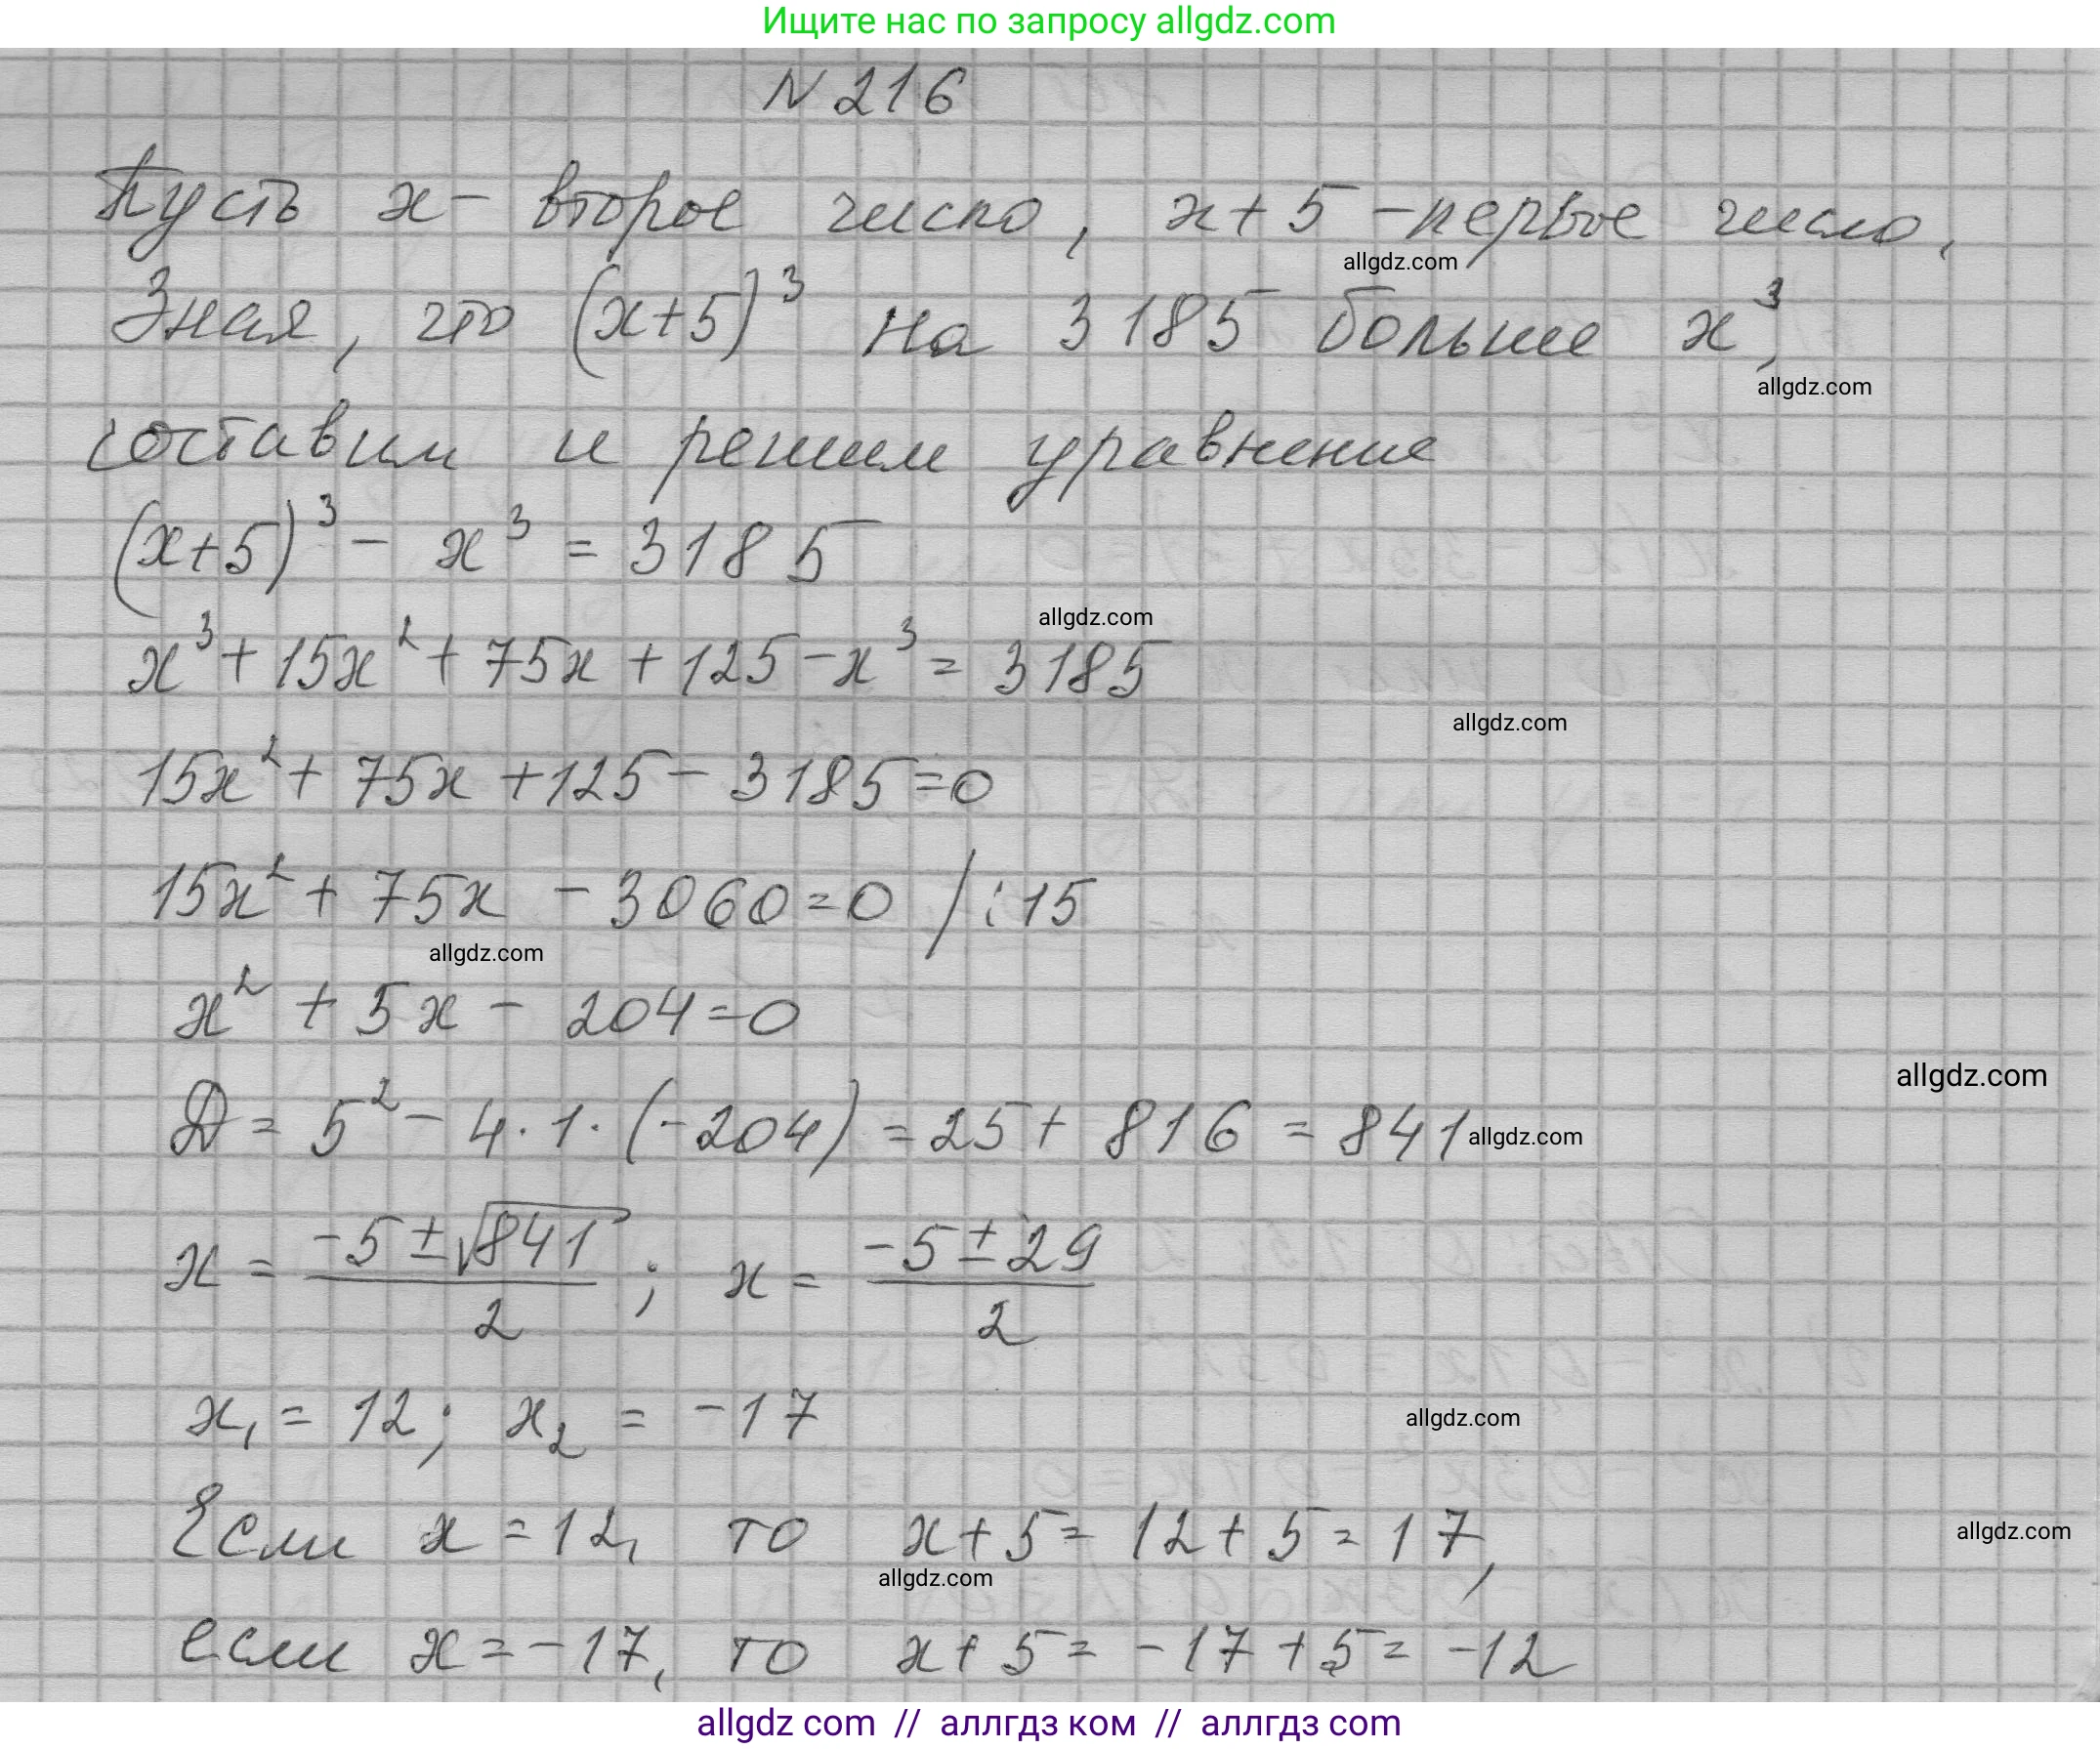 Ищите нас по запросу allgdz.com
N 216
Пусть x – второе число, x+5 – первое число.
allgdz.com
Зная, что (x+5)³ на 3185 больше x³,
allgdz.com
составим и решим уравнение
(x+5)³ – x³ = 3185
allgdz.com
x³ + 15x² + 75x + 125 – x³ = 3185
allgdz.com
15x² + 75x + 125 – 3185 = 0
15x² + 75x – 3060 = 0 /:15
allgdz.com
x² + 5x – 204 = 0
allgdz.com
Д = 5² – 4·1·(–204) = 25 + 816 = 841
allgdz.com
x = (–5 ± √841)/2 ; x = (–5 ± 29)/2
x₁ = 12; x₂ = –17
allgdz.com
Если x = 12, то x + 5 = 12 + 5 = 17,
allgdz.com
allgdz.com
если x = –17, то x + 5 = –17 + 5 = –12
allgdz com // аллгдз ком // аллгдз com